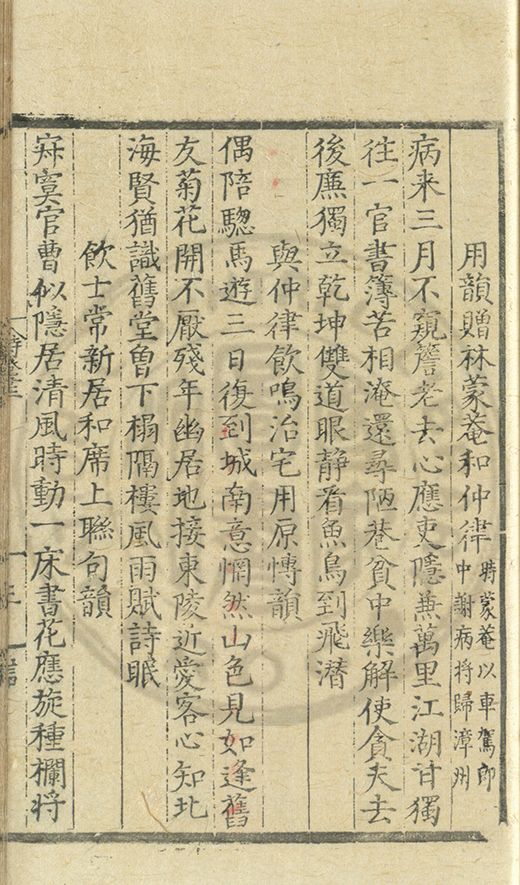 用韻贈林蒙菴和仲律時蒙菴以車駕郎
中謝病将歸漳州
病来三月不窺簷老去心應吏隱蕪萬里江湖甘獨
往一官書簿苦相淹還尋陋巷貧中樂解使貪夫去
後廉獨立乾坤雙道眼静看魚鳥到飛潜
與仲律飲鳴治宅用原慱韻
偶陪驄馬遊三日復到城南意惘然山色見如逢舊
友菊花開不厭殘年幽居地接東陵近愛客心知北
海賢猶識舊堂曽下榻隔樓風雨賦詩眠
飲士常新居和席上聯句韻
寂寞官曹似隱居清風時動一床書花應旋種欄将